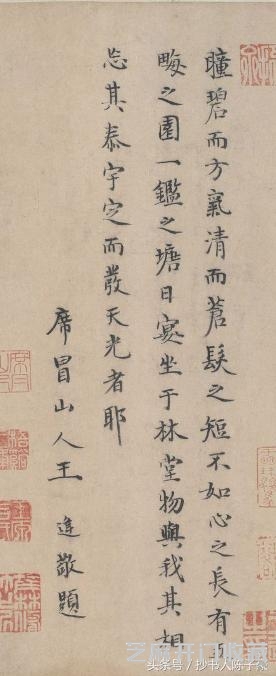 瞳碧而方氣清而蒼髮之短不如心之長有五
畮之園一鑑之塘日宴坐于林堂物與我其相
忘其泰宇定而發天光者耶
席冒山人王逢敬題
头条号 / 抄书人陈子